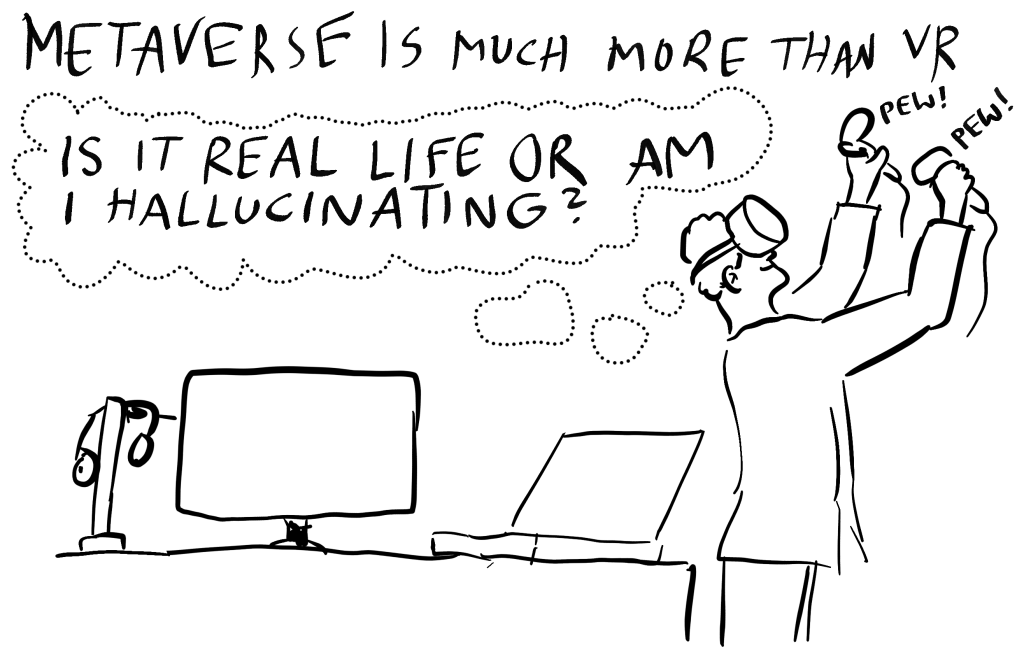 METAVERSE IS MUCH MORE THAN VR
PEW!
PEW!
IS IT REAL LIFE OR AM
I HALLUCINATING?